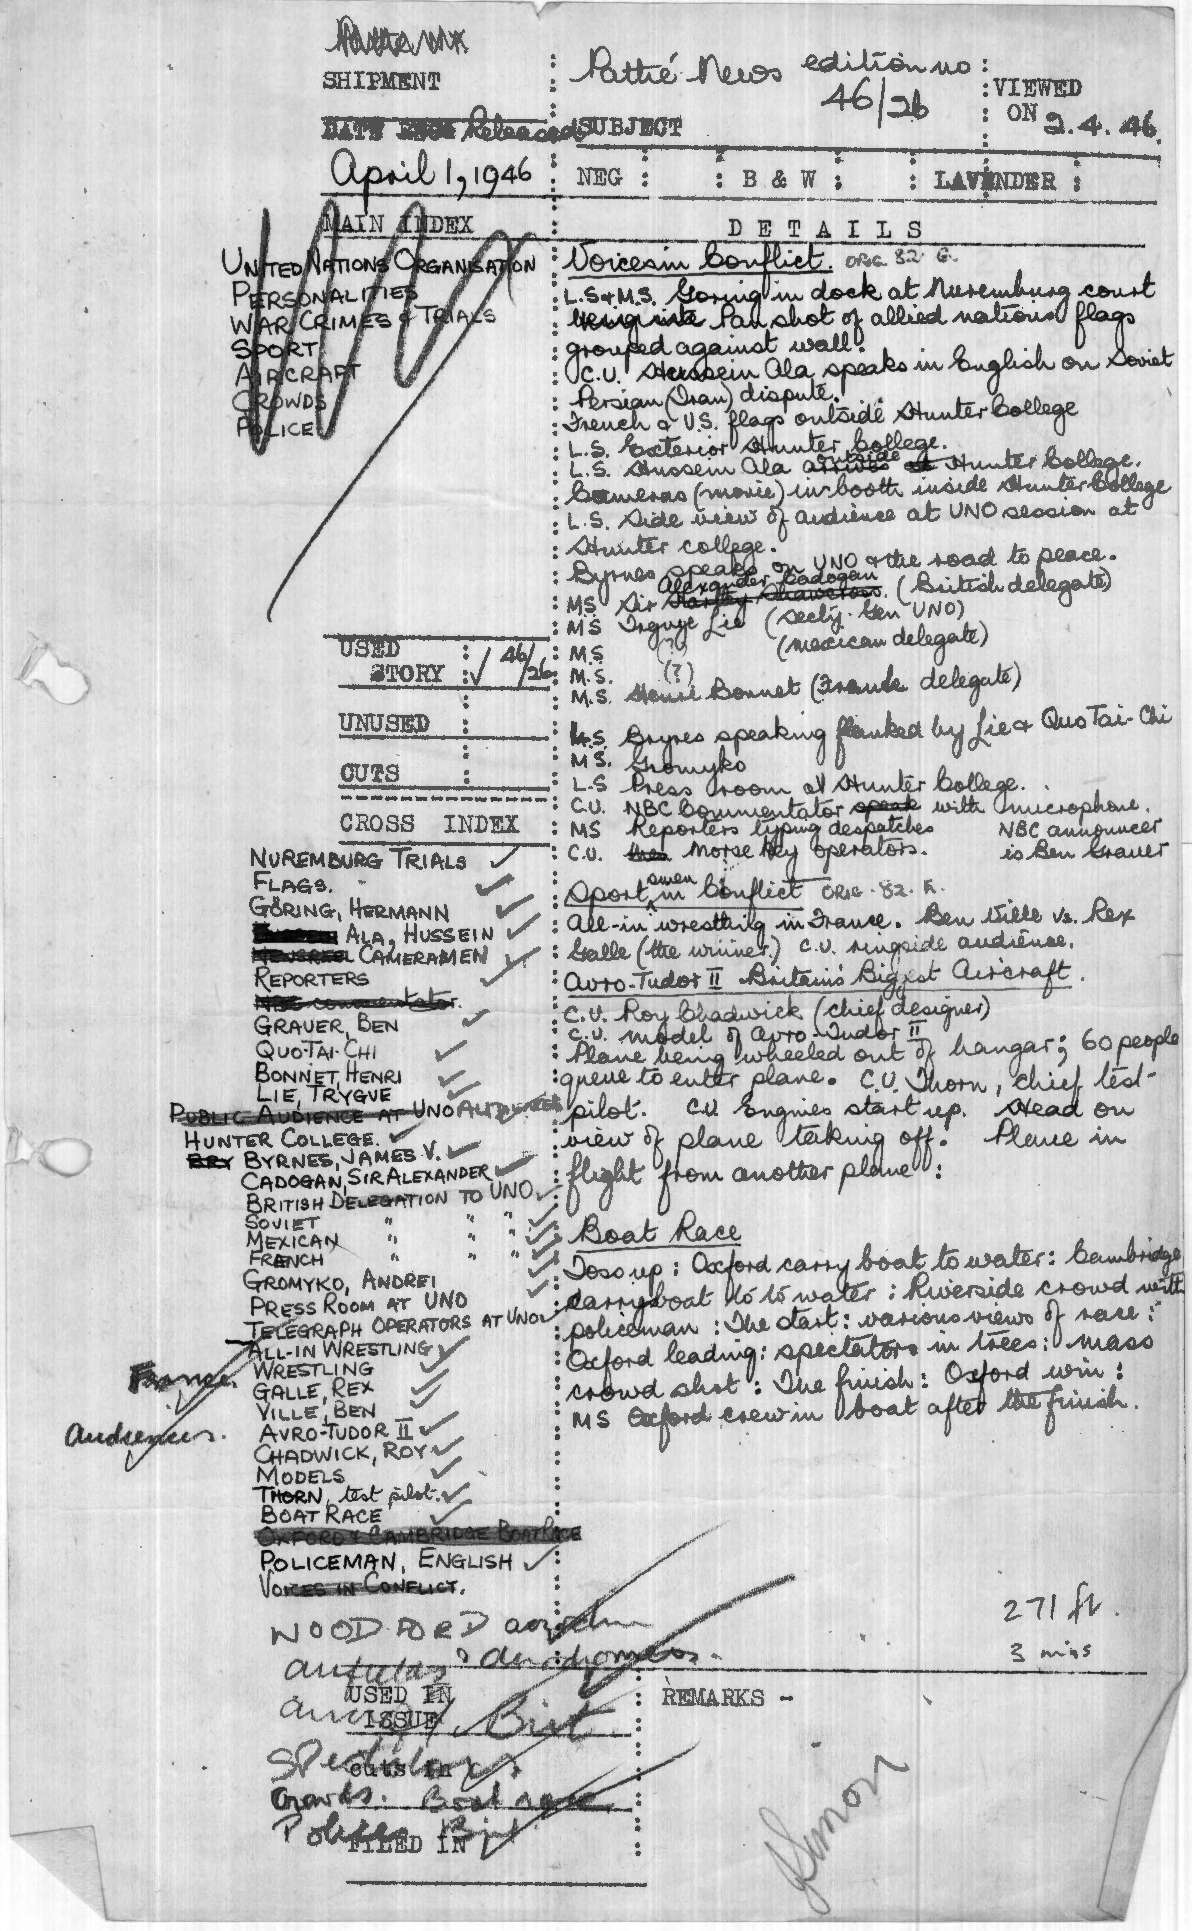 SHIPMENT
Pathé News edition no:
46/26
VIEWED
ON 2.4.46.
DATE Released
SUBJECT
April 1, 1946
NEG : : B & W : : LAVENDER :
MAIN INDEX
DETAILS
UNITED NATIONS ORGANISATION
PERSONALITIES
WAR CRIMES & TRIALS
SPORT
AIRCRAFT
CROWDS
POLICE
Voices in Conflict. ORIG. 82. G.
L.S & M.S. Goring in dock at Nuremburg court
Pan shot of allied nations flags
grouped against wall.
C.U. Hussein Ala speaks in English on Soviet
Persian (Iran) dispute.
French & U.S. flags outside Hunter College
L.S. Exterior Hunter College.
L.S. Hussein Ala arrives outside at Hunter College.
Cameras (movie) in booth inside Hunter College
L.S. Side view of audience at UNO session at
Hunter college.
Byrnes speaks on UNO & the road to peace.
Alexander Cadogan
MS. Sir Hartley Shawcross. (British delegate)
MS Trgvye Lie (Secty. Gen UNO)
M.S. (?) (mexican delegate)
M.S. (?)
M.S. Henri Bonnet (French delegate)
USED
STORY : √ 46/26
UNUSED
CUTS
CROSS INDEX
M.S. Brynes speaking flanked by Lie & Quo Tai-Chi
MS. Gromyko
L.S Press room at Hunter College.
C.U. NBC Commentator speak with microphone.
MS Reporters typing despatches NBC announcer
C.U. Morse Key operators. is Ben Grauer
Sport, omen in Conflict ORIG. 82. F.
All-in wrestling in France. Ben Ville vs. Rex
Galle (the winner.) C.U. ringside audience.
Avro-Tudor II Britain's Biggest Aircraft.
C.U. Roy Chadwick (chief designer)
C.U. model of Avro-Tudor II
Plane being wheeled out of hangar; 60 people
queue to enter plane. C.U. Thorn, chief test-
pilot. C.U Engines start up. Head on
view of plane taking off. Plane in
flight from another plane:
Boat Race
Toss up: Oxford carry boat to water: Cambridge
carry boat to to water: Riverside crowd with
policeman: The start: various views of race:
Oxford leading: spectators in trees: mass
crowd shot: The finish: Oxford win:
MS Oxford crew in boat after the finish.
NUREMBURG TRIALS
FLAGS.
GÖRING, HERMANN
ALA, HUSSEIN
NEWSREEL CAMERAMEN
REPORTERS
NBC commentator.
GRAUER, BEN
QUO-TAI-CHI
BONNET, HENRI
LIE, TRYGVE
PUBLIC AUDIENCE AT UNO AUDIENCES
HUNTER COLLEGE.
BRY BYRNES, JAMES V.
CADOGAN, SIR ALEXANDER
BRITISH DELEGATION TO UNO.
SOVIET " " "
MEXICAN " " "
FRENCH " " "
GROMYKO, ANDREI
PRESS ROOM AT UNO
TELEGRAPH OPERATORS AT UNO
ALL-IN WRESTLING
France. WRESTLING
GALLE, REX
VILLE, BEN
audiences. AVRO-TUDOR II
CHADWICK, ROY
MODELS
THORN, test pilot.
BOAT RACE
OXFORD & CAMBRIDGE BOAT RACE
POLICEMAN, ENGLISH
VOICES IN CONFLICT.
271 ft.
3 mins
WOODFORD
airfields & aerodromes.
USED IN
ISSUE
Brit
REMARKS -
Spectators
cuts in
Crowds. Boat race
Police Brit.
FILED IN
JSimon